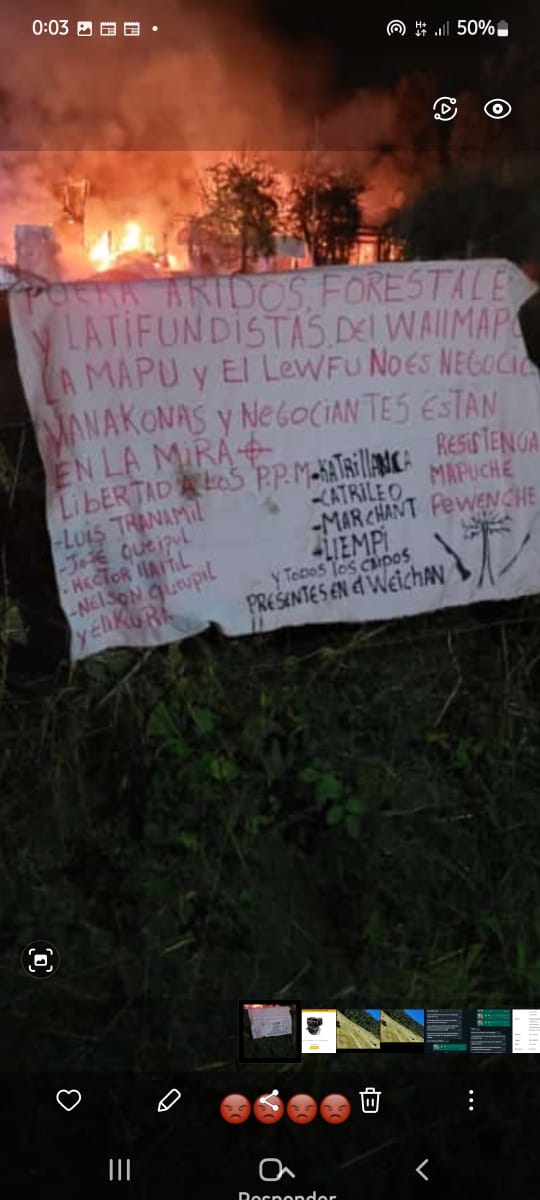 0:03
50%
FUERA ARIDOS, FORESTALE
Y LATIFUNDISTAS. DEl WAllMAPU
LA MAPU y El LeWFU NO ES NEGOCIO
YANAKONAS y NeGOCiANTES ESTAN
EN LA MiRA
LIBERTAD A LOS P.P.M
-LUIS TRANAMIL
-JOSE QUEIPUL
-HECTOR LLAITUL
-NELSON QUEUPIL
y ELIKURA
-KATRILLANCA
-CATRILEO
-MARCHANT
-LIEMPI
y TODOS LOS CAIDOS
PRESENTES EN el WeichAN
RESISTENCIA
MAPUCHE
PeWENCHE
Responder